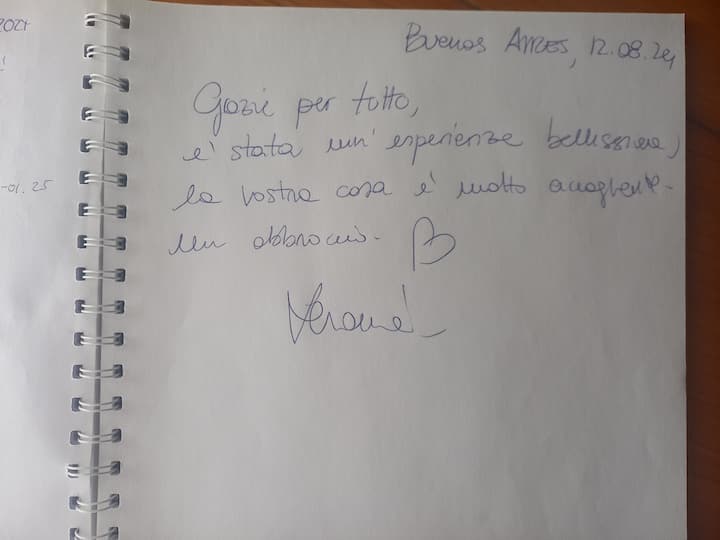 2024
-01.25
Buenos Aires, 12.08.24
Grazie per tutto,
e' stata un' esperienza bellissima,
la vostra casa è molto accogliente-
un abbraccio.